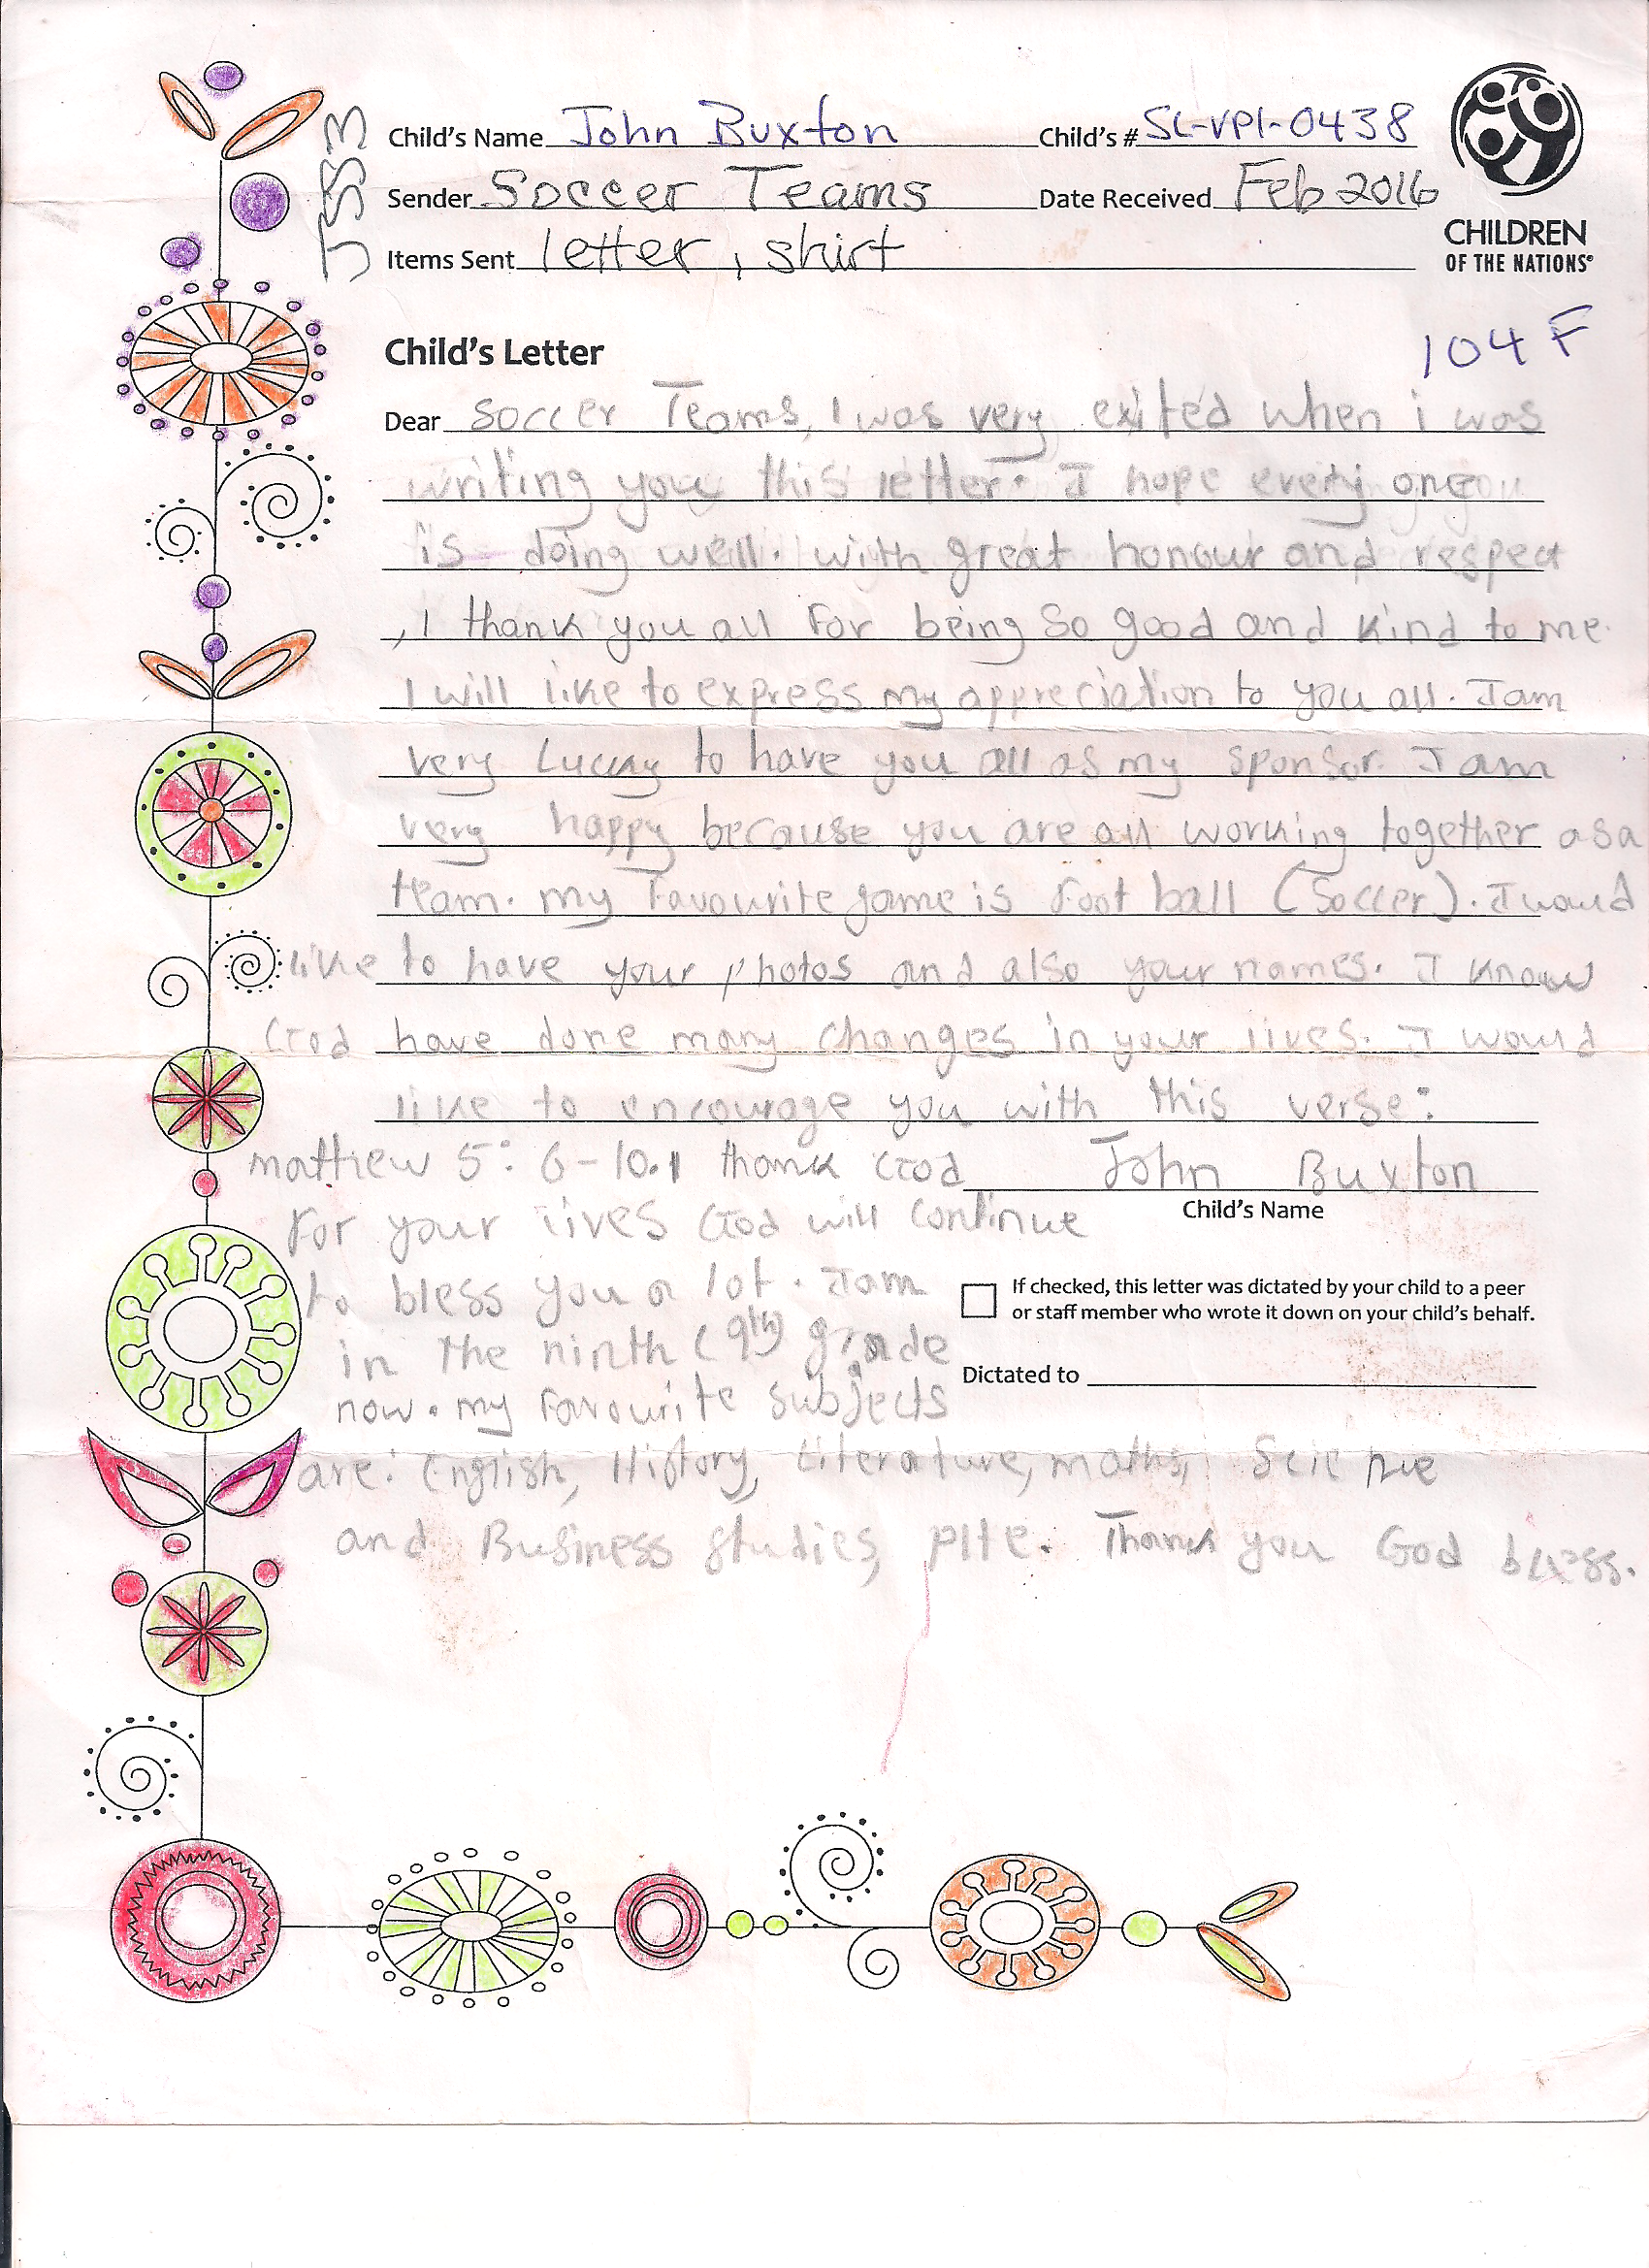 JSS3
Child's Name John Buxton Child's # SL-VPI-0438
Sender Soccer Teams Date Received Feb 2016
Items Sent letter, shirt
CHILDREN
OF THE NATIONS®
104 F
Child's Letter
Dear soccer Teams, I was very exited when i was
writing you this letter. I hope every one
is doing well. with great honour and respect
, I thank you all for being so good and kind to me.
I will like to express my appreciation to you all. I am
very Lucky to have you all as my sponsor. I am
very happy because you are all working together as a
team. my favourite game is foot ball (Soccer). I would
like to have your photos and also your names. I know
God have done many changes in your lives. I would
like to encourage you with this verse:
matthew 5: 6-10. I thank God John Buxton
Child's Name
for your lives God will continue
to bless you a lot. I am
If checked, this letter was dictated by your child to a peer
or staff member who wrote it down on your child's behalf.
in the ninth (9th) grade
Dictated to
now. my favourite subjects
are: English, History, Literature, maths,
and Business studies, Thank you God bless.